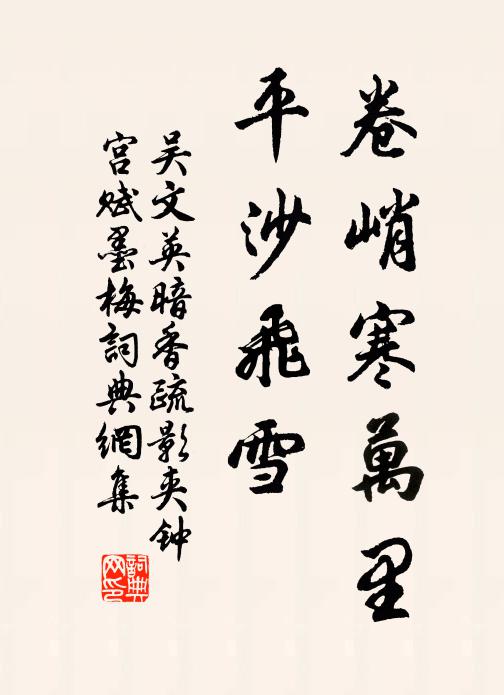 卷峭寒萬里
平沙飛雪
吴文英暗香疏影夹钟
宫赋墨梅詞典網集
詞典
网印